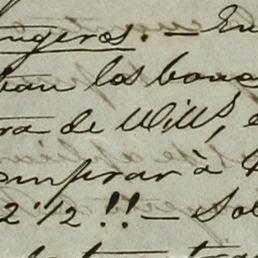 ngeros. — En
ban los bonos
ra de Wills, e
omprar á
2 1/2!! — Sol